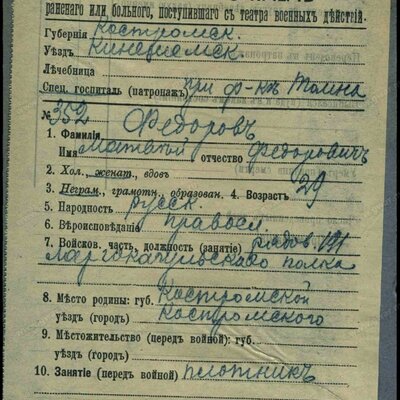 раненаго или больного, поступившаго съ театра военныхъ дѣйствій.
Губернія Костромск.
Уѣздъ Кинешемск
Лѣчебница
Спец. госпиталь (патронаж) при ф-кѣ Томна
№ 352
1. Фамилія Федоровъ
Имя Матвѣй отчество Федоровичъ
2. Хол., женат., вдов
3. Неграм., грамотн., образован. 4. Возрастъ 29
5. Народность русск.
6. Вѣроисповѣданіе правосл
7. Войсков. часть, должность (занятіе) рядов. 191
Ларгокагульскаго полка
8. Мѣсто родины: губ. Костромской
уѣздъ (городъ) Костромского
9. Мѣстожительство (передъ войной): губ.
уѣздъ (город.)
10. Занятіе (передъ войной) плотникъ